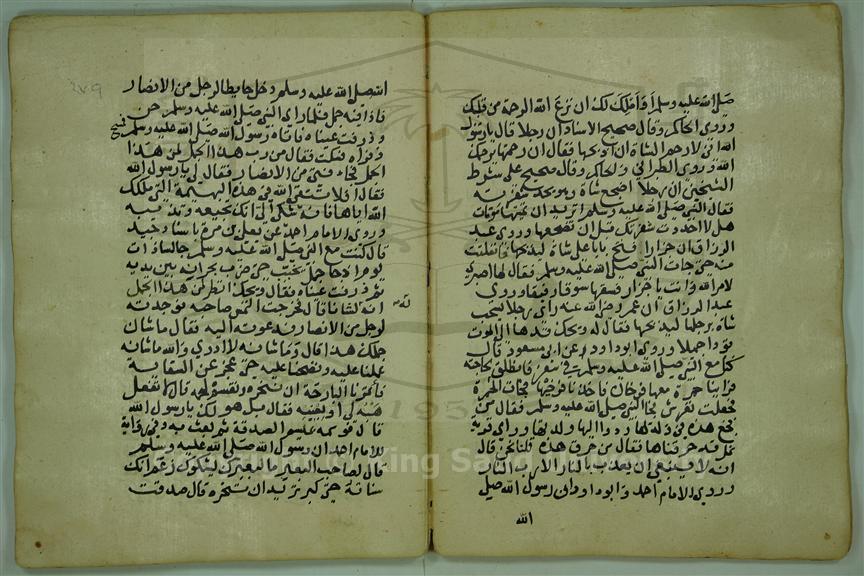 صلى الله عليه وسلم أو أملك لك ان نزع الله الرحمة من قلبك
وروى الحاكم وقال صحيح الاسناد ان رجلا قال يارسول
الله اني لارحم الشاة ان اذبحها فقال ان رحمتها يرحمك
الله وروى الطبراني والحاكم وقال صحيح على شرط
الشيخين ان رجلا اضجع شاة وهو يحد شفرته
فقال النبي صلى الله عليه وسلم اتريد ان تميتها موتات
هلا احددت شفرتك قبل ان تضجعها وروى عبد
الرزاق ان جزارا فتح بابا على شاة ليذبحها فانفلتت
منه حتى جات النبي صلى الله عليه وسلم فقال لها اصبري
لامر الله وانت يا جزار فسقها سوقا رفيقا وروى
عبد الرزاق ان عمر رضي الله عنه رأى رجلا يسحب
شاة برجلها ليذبحها فقال له ويحك قدها الى الموت
قودا جميلا وروى ابو داود عن ابن مسعود قال
كنا مع النبي صلى الله عليه وسلم في سفر فانطلق لحاجته
فراينا حمرة معها فرخان فاخذنا فرخيها فجات الحمرة
فجعلت تعرش فجا النبي صلى الله عليه وسلم فقال من
فجع هذه في ولدها ردوا اليها ولديها وراى قرية
نمل قد حرقناها فقال من حرق هذه قلنا نحن قال
انه لا ينبغي ان يعذب بالنار الا رب النار
وروى الامام احمد وابو داود ان رسول الله صلى
الله
٢٧٩
الله صلى الله عليه وسلم دخل حايطا لرجل من الانصار
فاذا فيه جمل فلما راى النبي صلى الله عليه وسلم حن
وذرفت عيناه فاتاه رسول الله صلى الله عليه وسلم فمسح
ذفراه فسكت فقال من رب هذا الجمل لمن هذا
الجمل فجاء فتى من الانصار فقال لي يارسول الله
فقال افلا تتقي الله في هذه البهيمة التي ملكك
الله اياها فانه شكى الي انك تجيعه وتذيبه
وروى الامام احمد عن يعلى بن مرة باسناد جيد
قال كنت مع النبي صلى الله عليه وسلم جالسا ذات
يوم اذ جا جمل يخبب حتى ضرب بجرانه بين يديه
ثم ذرفت عيناه فقال ويحك انظر لمن هذا الجمل
ان له لشانا قال فخرجت التمس صاحبه فوجدته
لرجل من الانصار فدعوته اليه فقال ما شان
جملك هذا قال وما شانه لا ادري والله ما شانه
عملنا عليه ونضحنا عليه حتى عجز عن السقاية
فأتمرنا البارحة ان ننحره ونقسم لحمه قال لا تفعل
هبه لي او بعنيه فقال بل هو لك يارسول الله
قال فوسمه بميسم الصدقة ثم بعث به وفي رواية
للامام احمد ان رسول الله صلى الله عليه وسلم
قال لصاحب البعير ما لبعيرك يشكوك زعم انك
سناته حتى كبر تريد ان تنحره قال صدقت